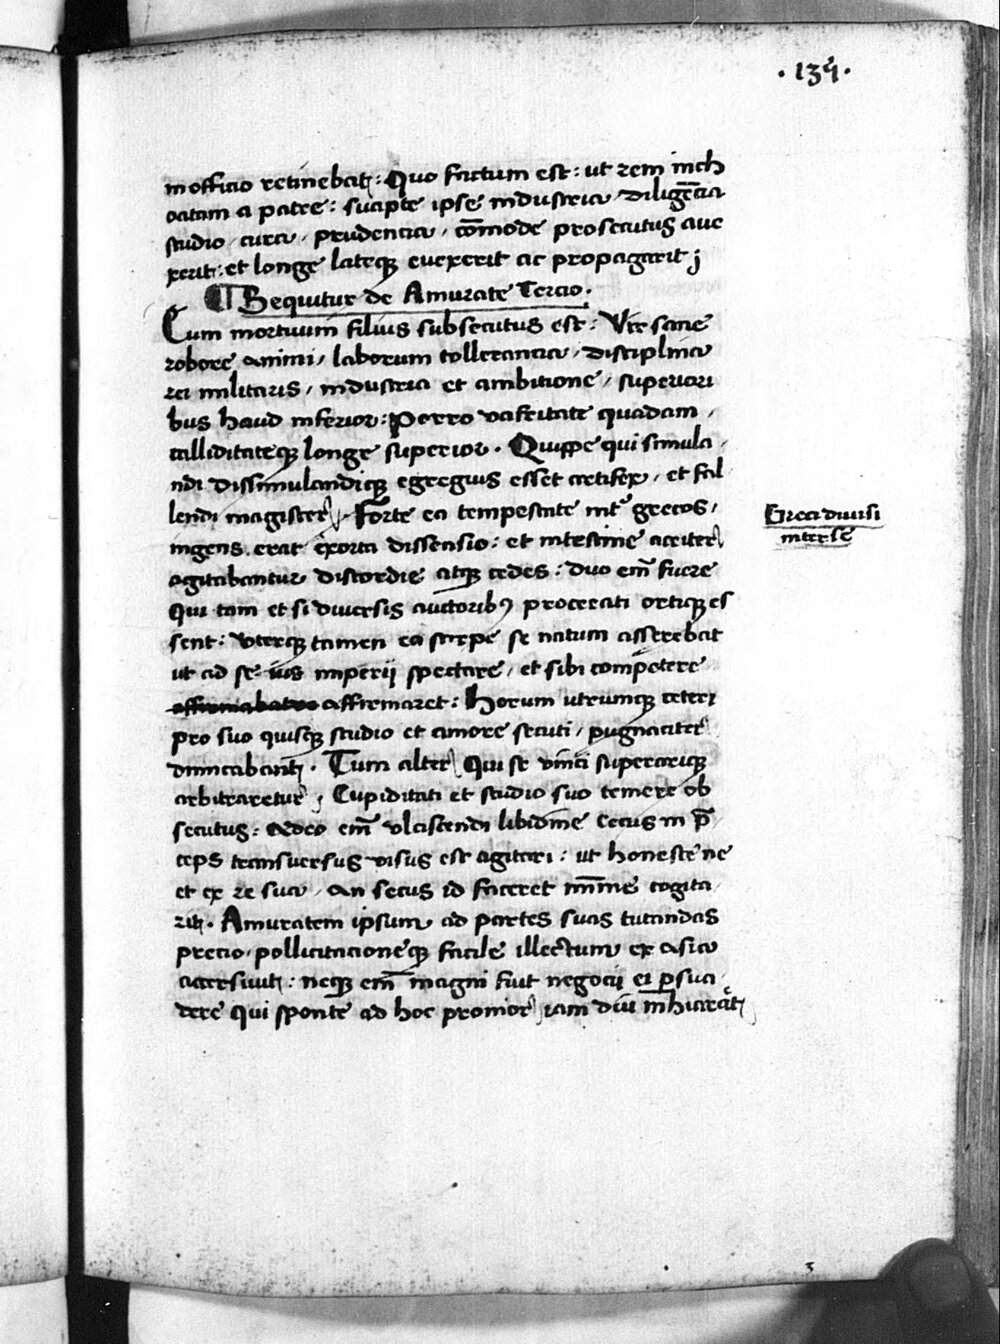 · 135 ·
in officio retinebat: Quo factum est: ut rem inch
oatam a patre: suapte ipse industria diligencia
studio cura, prudencia, comode prosecutus aux
xerit: et longe lateque euexerit ac propagarit
Sequitur de Amurate Tercio.
Cum mortuum filius subsecutus est: Vir sane
robore animi, laborum tollerancia, disciplina
rei militaris, industria et ambitione, superiori
bus haud inferior: Porro vafritate quadam,
calliditateque longe superior. Quippe qui simula
ndi dissimulandique egregius esset artifex, et fal
lendi magister. Forte ea tempestate int' grecos,
ingens erat exorta dissensio: et intestine acriter
agitabantur discordie atque cedes: duo em fuere
Qui tam et si diuersis auctorib9 procreati ortique es
sent: vterque tamen ea stirpe se natum assereбat
ut ad se ius imperij spectare, et sibi competere
affirmabatur affirmaret: Horum utrumque ceteri
pro suo quisque studio et amore secuti, pugnaciter
dimicabant. Tum alter Qui se vinci superarique
arbitraretur, Cupiditati et studio suo temere ob
secutus: Adeo em vlciscendi libidine cecus in p
ceps transuersus visus est agitari: ut honeste ne
et ex re sua, an secus id faceret minime cogita
rit. Amuratem ipsum ad partes suas tutandas
precio, pollicitacioneque facile illectum ex asia
accersiuit: neque em magni fuit negocij ei psua
dere qui sponte ad hoc promior iam diu inhiarat
Greci diuisi
inter se
3